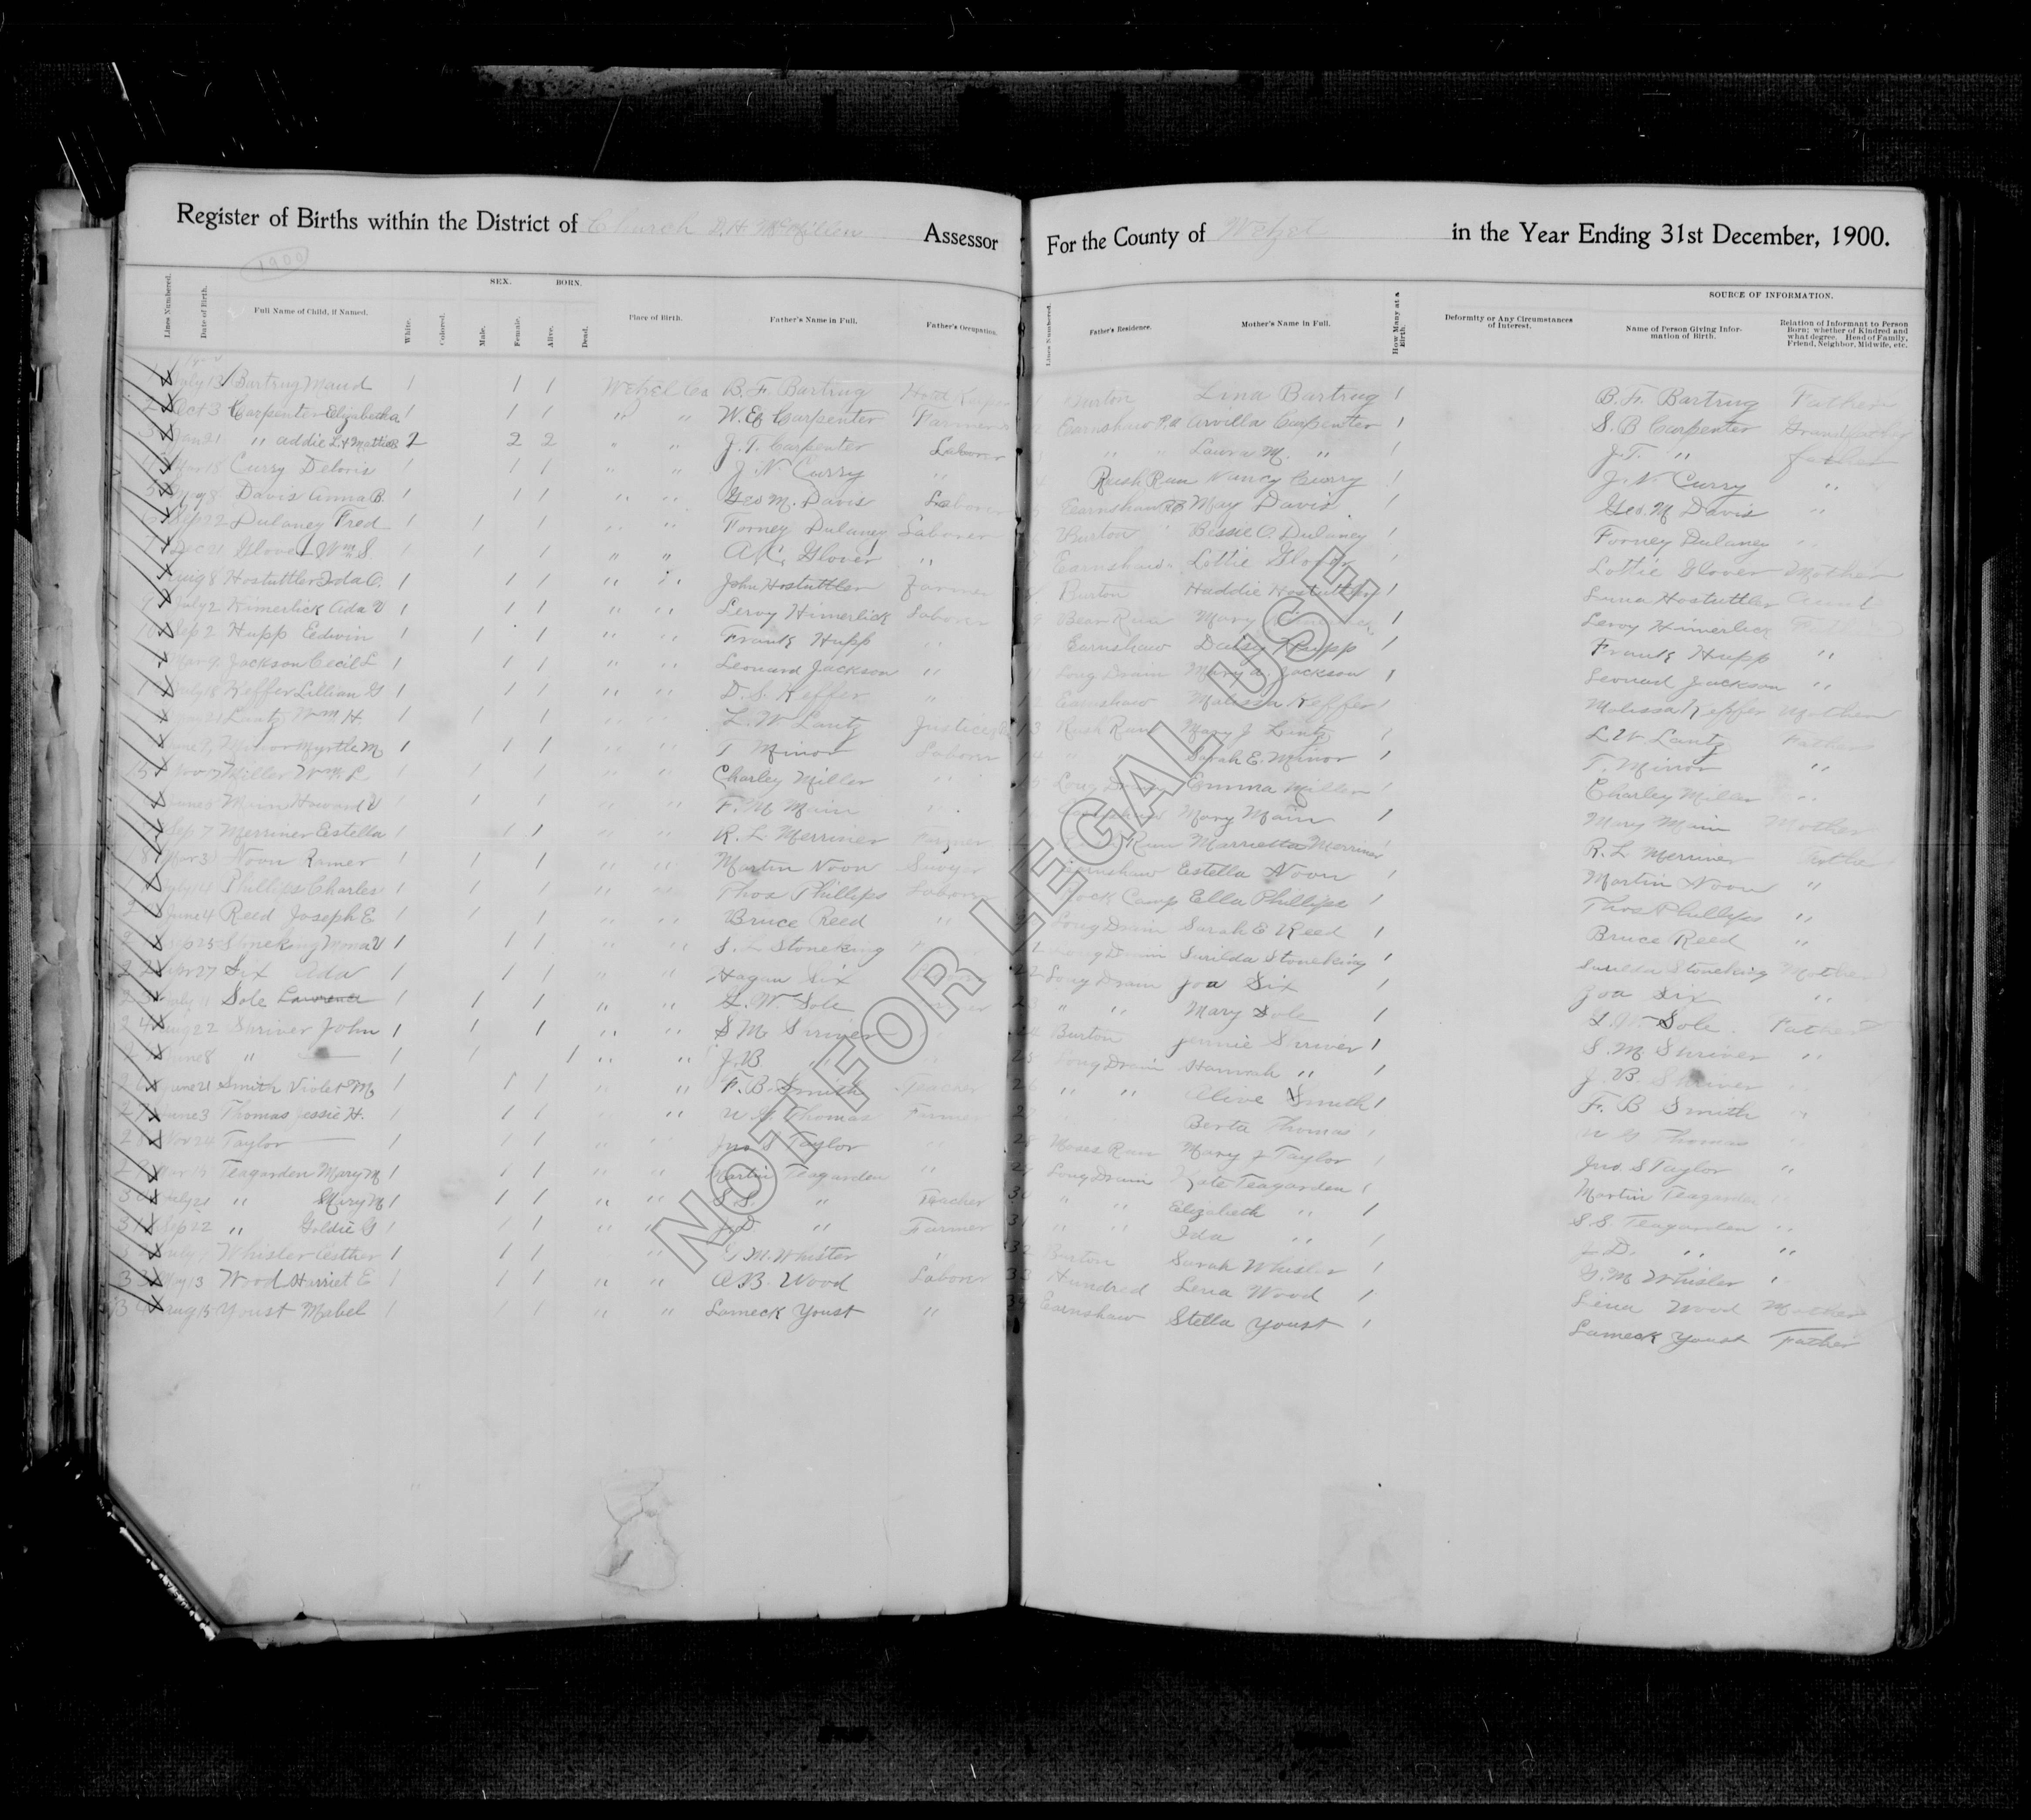 Register of Births within the District of Church D. H. Assessor For the County of Wetzel in the Year Ending 31st December, 1900.
1900
SEX. BORN. SOURCE OF INFORMATION.
Lines Numbered. Date of Birth. Full Name of Child, if Named. White. Colored. Male. Female. Alive. Dead. Place of Birth. Father's Name in Full. Father's Occupation. Lines Numbered. Father's Residence. Mother's Name in Full. How Many at a Birth. Deformity or Any Circumstances of Interest. Name of Person Giving Information of Birth. Relation of Informant to Person Born; whether of Kindred and what degree. Head of Family, Friend, Neighbor, Midwife, etc.
1 July 13 Bartrug Maud 1 1 1 Wetzel Co B. F. Bartrug Burton Lina Bartrug 1 B. F. Bartrug Father
2 Oct 3 Carpenter Elizabeth a 1 1 1 " " W. E. Carpenter Farmer Earnshaw Arvilla Carpenter 1 S. B Carpenter Grandfather
3 Jan 21 " Addie L & Mattie B 2 2 2 " " J. T. Carpenter Laborer " " Laura M. " J. T. " father
4 Mar 18 Curry Deloris 1 1 1 " " J. N. Curry " Rush Run Nancy Curry 1 J. N. Curry "
5 Aug 8 Davis Anna B. 1 1 1 " " Geo M. Davis Laborer Earnshaw May Davis 1 Geo. M Davis "
6 Sep 22 Dulaney Fred 1 1 1 " " Forney Dulaney Laborer Burton Bessie O. Dulaney 1 Forney Dulaney "
7 Dec 21 Glover Wm S 1 1 1 " " A. C. Glover " Earnshaw Lottie Glover 1 Lottie Glover Mother
Aug 8 Hostuttler Ida C. 1 1 1 " " John Hostuttler Farmer Burton Haddie Hostuttler 1 Hostuttler Aunt
9 July 2 Himerlick Ada V 1 1 1 " " Leroy Himerlick Laborer 9 Bear Run Mary Himerlick 1 Leroy Himerlick
10 Sep 2 Hupp Edwin 1 1 1 " " Frank Hupp " Earnshaw Daisy Hupp 1 Frank Hupp "
Mar 9 Jackson Cecil L 1 1 1 " " Leonard Jackson " Long Drain Mary A. Jackson 1 Leonard Jackson "
July 18 Keffer Lillian G 1 1 1 " " D. S. Keffer " Earnshaw Malissa Keffer 1 Malissa Keffer Mother
Lantz Wm H. 1 1 1 " " L. W Lantz Justice 13 Rush Run Mary J Lantz 1 L W Lantz Father
Minor Myrtle M 1 1 1 " " T Minor Laborer 14 " Sarah E. Minor 1 T. Minor "
15 Nov Miller Wm L 1 1 1 " " Charley Miller " 15 Long Drain Emma Miller 1 Charley Miller "
June Main Howard V 1 1 1 " " F. M Main " Earnshaw Mary Main 1 Mary Main Mother
Sep 7 Merriner Estella 1 1 1 " " R. L. Merriner Farmer Run Marrietta Merriner 1 R. L Merriner Father
18 Mar 3 Noon Ramer 1 1 1 " " Martin Noon Earnshaw Estella Noon 1 Martin Noon "
July 14 Phillips Charles 1 1 1 " " Thos Phillips Laborer Rock Camp Ella Phillips 1 Thos Phillips "
20 June 4 Reed Joseph E 1 1 1 " " Bruce Reed " Long Drain Sarah E Reed 1 Bruce Reed "
Sep 25 Stoneking Mona V 1 1 1 " " S. L Stoneking " Long Drain Surilda Stoneking 1 Surilda Stoneking Mother
22 Apr 27 Six Ada 1 1 1 " " Hagan Six 22 Long Drain Joa Six 1 Joa Six "
23 July 11 Sole Lawrence 1 1 1 " " L. W. Sole 23 " " Mary Sole 1 L. W. Sole. Father
24 Aug 22 Shriver John 1 1 1 " " S M Shriver 24 Burton Jennie Shriver 1 S. M Shriver "
25 June 8 " 1 1 1 " " J. B 25 Long Drain Hannah " 1 J. B. Shriver "
26 June 21 Smith Violet M 1 1 1 " " F. B. Smith Teacher 26 " " Olive Smith 1 F. B Smith "
27 June 3 Thomas Jessie H. 1 1 1 " U. G. Thomas Farmer 27 Berta Thomas 1 U G Thomas
28 Nov 24 Taylor 1 1 1 " " Jno S Taylor " 28 Moses Run Mary J Taylor 1 Jno. S Taylor "
29 Teagarden Mary M 1 1 1 " " Martin Teagarden " 29 Long Drain Kate Teagarden 1 Martin Teagarden "
30 July 21 " Mary M 1 1 1 " " S. S. " Teacher 30 " " Elizabeth " 1 S S. Teagarden "
31 Sep 22 " Goldie G 1 1 1 " " J. D " Farmer 31 " " Ida " 1 J. D. " "
July Whisler Esther 1 1 1 " G. M. Whisler " 32 Burton Sarah Whisler 1 G. M Whisler "
33 May 13 Wood Harriet E 1 1 1 " " A B. Wood Laborer 33 Hundred Lena Wood 1 Lena Wood Mother
34 Aug 15 Youst Mabel 1 1 1 " " Lameck Youst " 34 Earnshaw Stella Youst 1 Lameck Youst Father
NOT FOR LEGAL USE